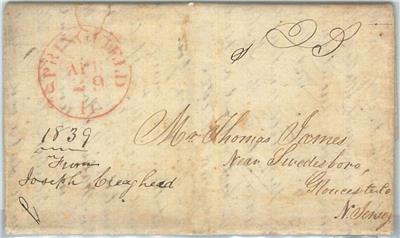 SPRINGFIELD
APR
29
Il.
1839
From
Joseph Creaghead
Mr Thomas James
Near Swedesboro,
Gloucester Co
N. Jersey